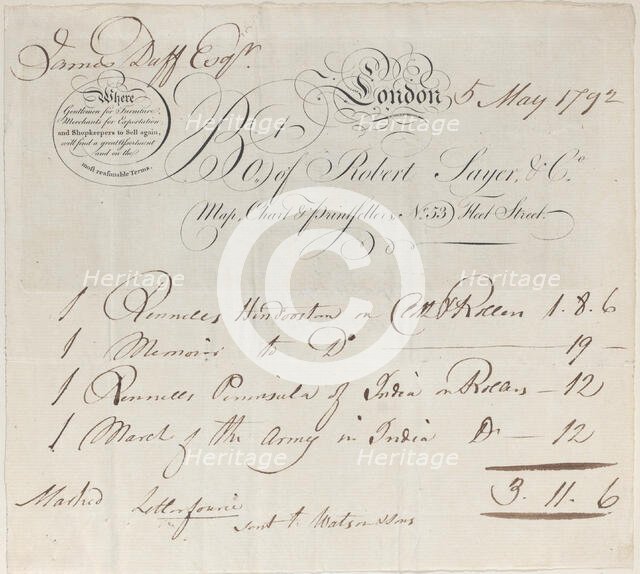 James Duff Esqr.
London 5 May 1792
Where
Gentlemen for Furniture,
Merchants for Exportation
and Shopkeepers to Sell again,
will find a great Assortment
and on the
most reasonable Terms.
Bot.
of Robert Sayer, & Co.
Map, Chart & Printsellers No. 53 Fleet Street.
1 Rennells Hindoostan on Rollers 1.8.6
1 Memoir to Do 19 –
1 Rennells Peninsula of India on Rollers – 12
1 March of the Army in India Do – 12
3.11.6
Marked
sent to Watson & Sons
Heritage
Heritage
Heritage
Heritage
Heritage
Heritage
Heritage
Heritage
Heritage